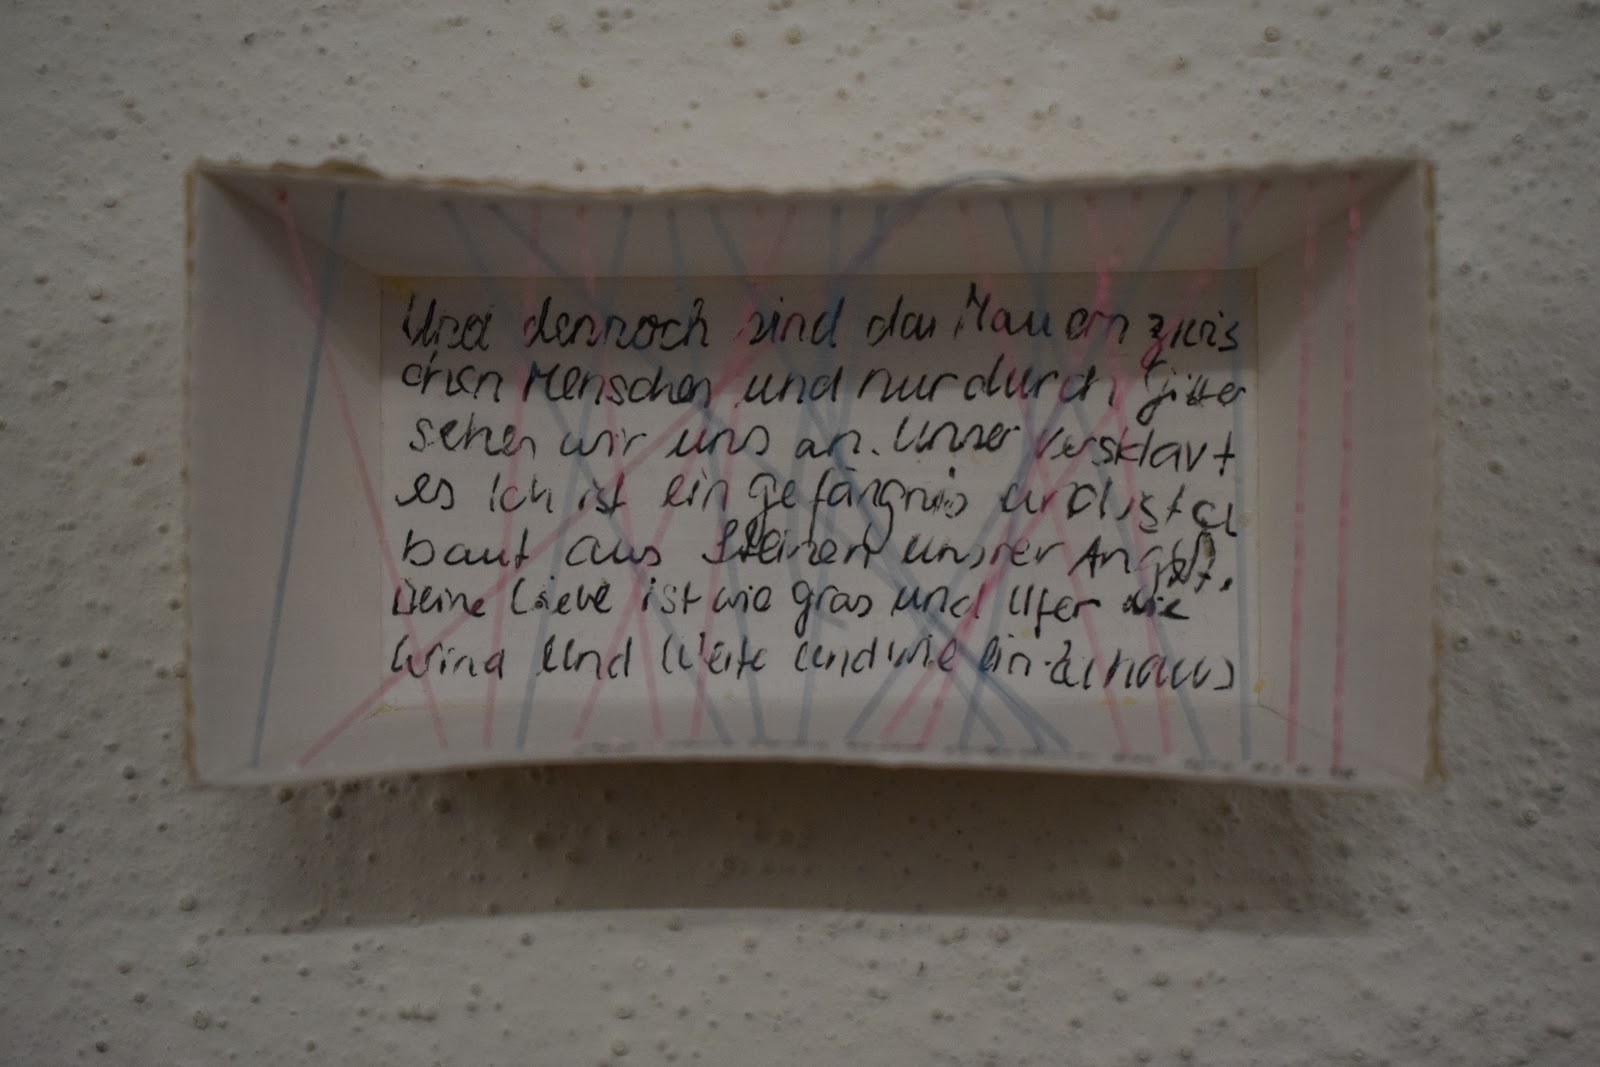 Und dennoch sind da Mauern zwis
chen Menschen und nur durch Gitter
sehen wir uns an. Unser versklavt
es Ich ist ein gefängnis und ist ge
baut aus Steinen unsrer Angst.
Deine Liebe ist wie gras und Ufer wie
Wind und Weite und wie ein zuhaus